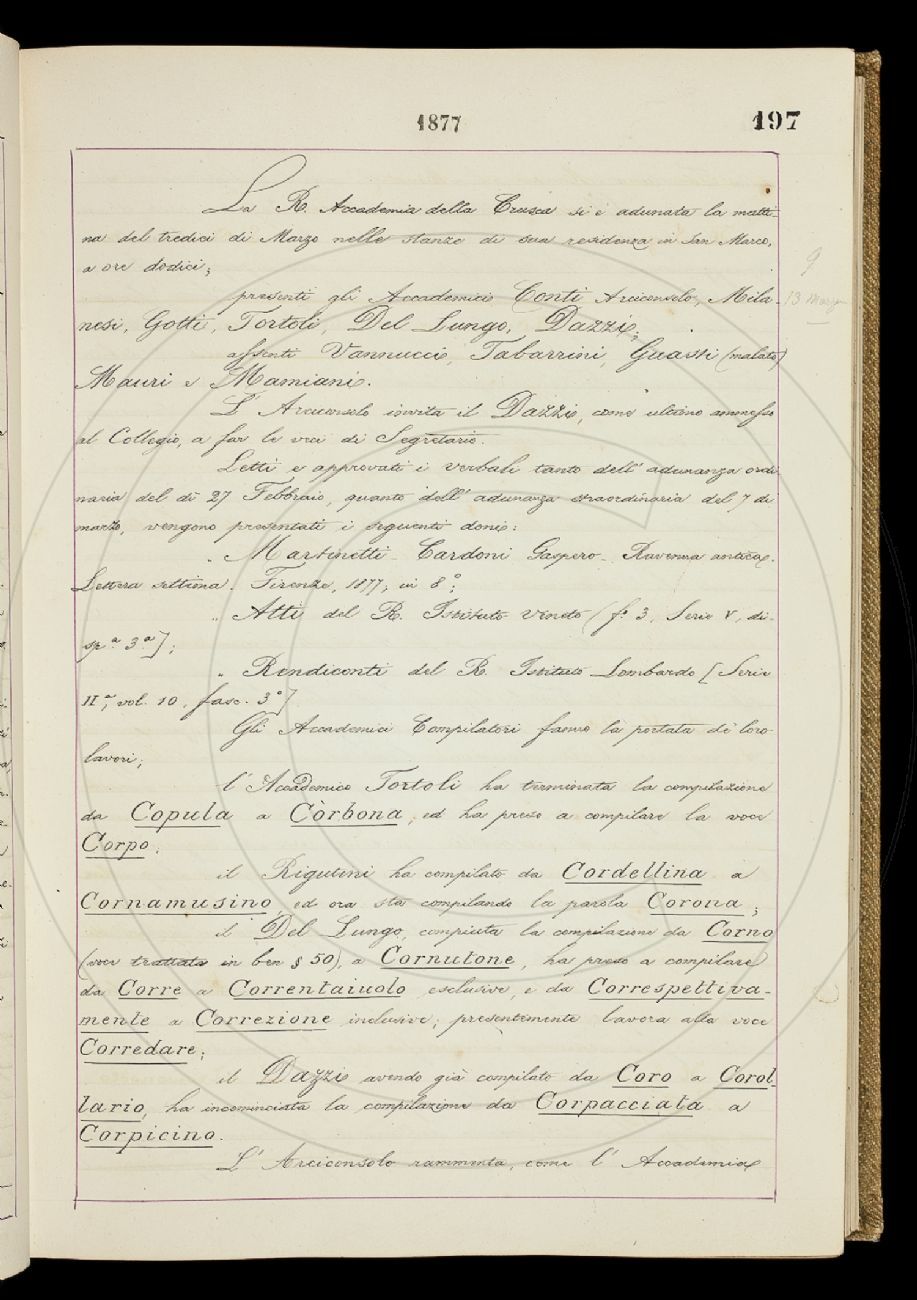 1877
197
La R. Accademia della Crusca si è adunata la matti-
na del tredici di Marzo nelle stanze di sua residenza in San Marco,
a ore dodici;
9
13 Marzo
presenti gli Accademici Conti Arciconsolo, Mila-
nesi, Gotti, Tortoli, Del Lungo, Dazzi;
assenti Vannucci, Tabarrini, Guasti (malato)
Mauri e Mamiani.
L' Arciconsolo invita il Dazzi, come ultimo ammesso
al Collegio, a far le veci di Segretario.
Letti e approvati i verbali tanto dell' adunanza ordi
naria del dì 27 Febbraio, quanto dell' adunanza straordinaria del 7 di
marzo, vengono presentati i seguenti doni:
Martinetti - Cardoni Gaspero - Ravenna antica.
Lettera settima. Firenze, 1877, in 8°;
Atti del R. Istituto Veneto (f.° 3, Serie V, di-
sp.ª 3ª];
Rendiconti del R. Istituto Lombardo [Serie
IIª, vol. 10, fasc. 3°]
Gli Accademici Compilatori fanno la portata de' loro
lavori;
l' Accademico Tortoli ha terminata la compilazione
da Copula a Còrbona, ed ha preso a compilare la voce
Corpo;
il Rigutini ha compilato da Cordellina a
Cornamusino ed ora sta compilando la parola Corona;
il Del Lungo, compiuta la compilazione da Corno
(voce trattata in ben § 50), a Cornutone, ha preso a compilare
da Corre a Correntaiuolo esclusive, e da Correspettiva-
mente a Correzione inclusive; presentemente lavora alla voce
Corredare;
il Dazzi avendo già compilato da Coro a Corol
lario, ha incominciata la compilazione da Corpacciata a
Corpicino.
L' Arciconsolo rammenta, come l' Accademia